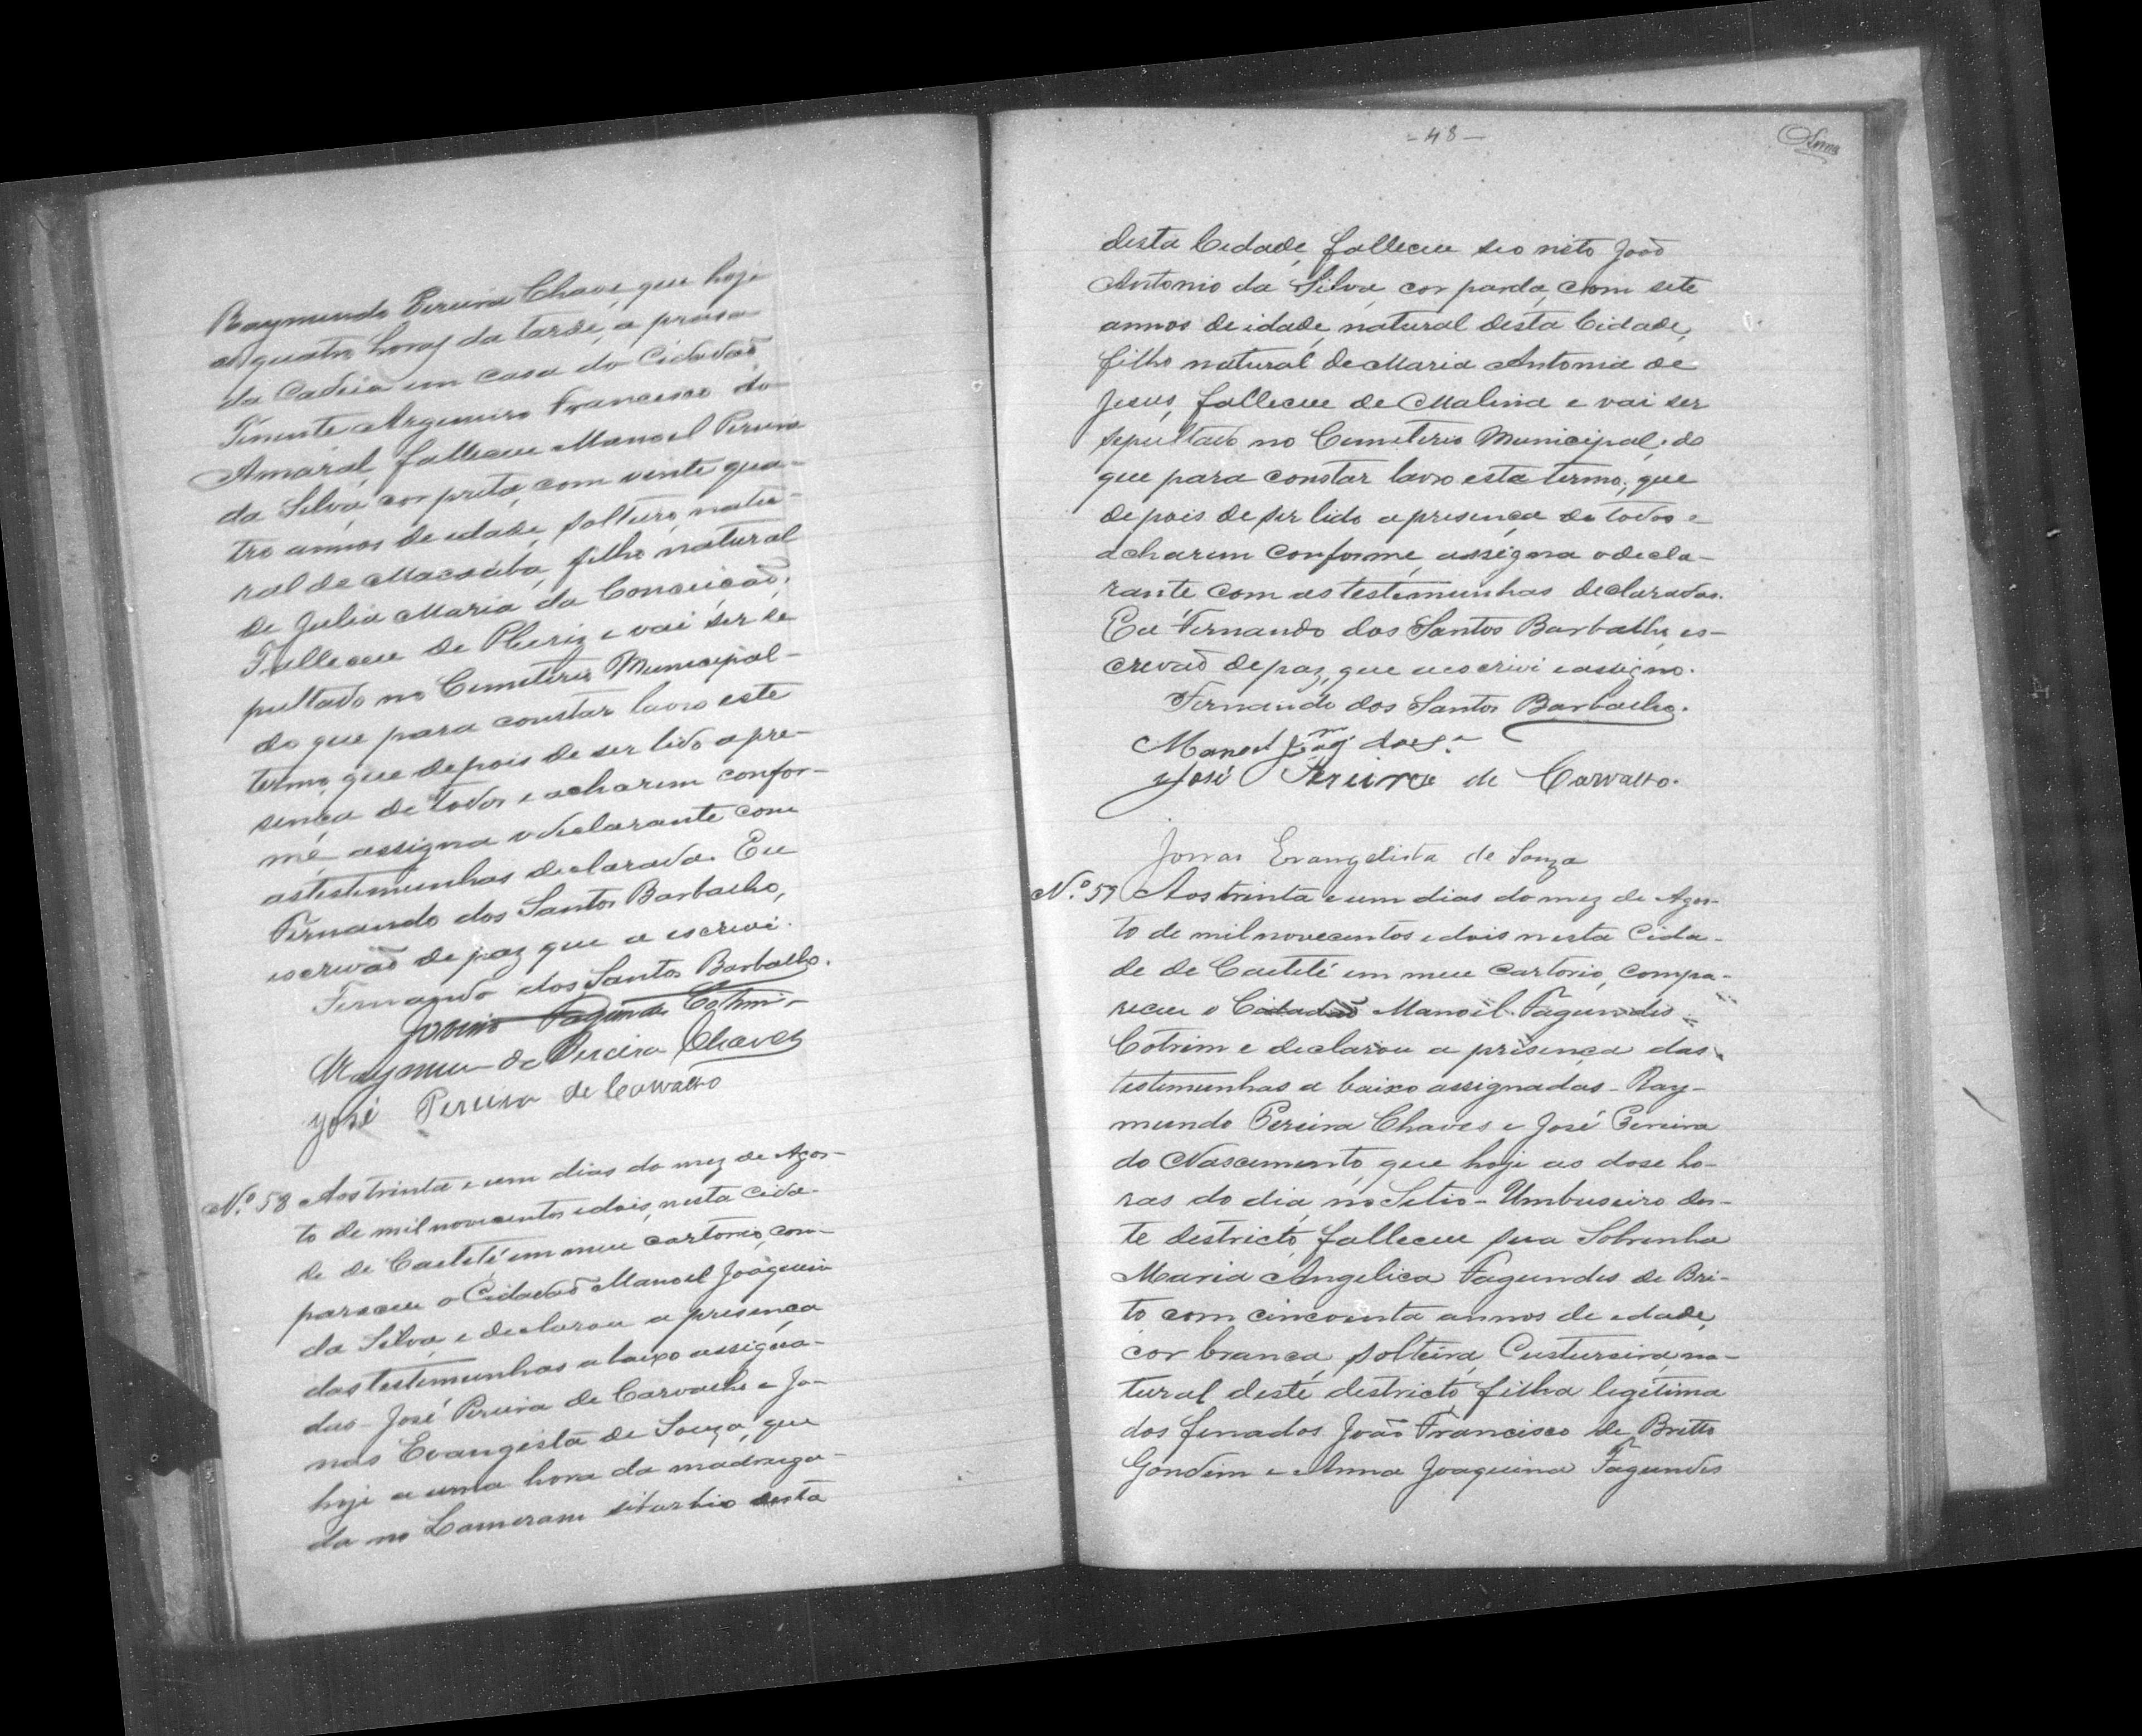 Raymundo Pereira Chaves, que hoje
as quatro horas da tarde, a prasa
da Cadeia em casa do Cidadaõ
Tenente Argemiro Francisco do
Amaral, falleceu Manoel Pereira
da Silva, cor preta, com vinte qua-
tro annos de edade, solteiro, natu-
ral de Macaúba, filho natural
de Julia Maria da Conceicaõ.
Falleceu de Pleuriz e vai ser se
pultado no Cemiterio Municipal-
do que para constar lavro este
termo, que depois de ser lido a pre-
sença de todos e acharem confor-
me assigna o declarante com
as testemunhas declarada. Eu
Fernando dos Santos Barbalho,
escrivaõ de paz que a escrevi.
Fernando dos Santos Barbalho.
Fagundes Cotrim
Raymundo Pereira Chaves
José Pereira de Carvalho
Nº. 58 Aos trinta e um dias do mez de Agos-
to de mil novecentos e dois, nesta cida-
de de Caeteté, em meu cartorio, com-
pareceu o Cidadaõ Manoel Joaquim
da Silva, e declarou a presença
das testemunhas a baixo assigna-
das- José Pereira de Carvalho e Jo-
nas Evangista de Souza, que
hoje a uma hora da madruga-
da no suburbio desta
- 48 -
desta Cidade, falleceu seo neto Joaõ
Antonio da Silva, cor parda, com sete
annos de idade, natural desta Cidade,
filho natural de Maria Antonia de
Jesus, falleceu de Malina e vai ser
sepultado no Cemiterio Municipal, do
que para constar lavro esta termo, que
depois de ser lido a presença de todos e
acharem conforme, assigna o decla-
rante com as testemunhas declaradas.
Eu Fernando dos Santos Barbalho, es-
crevaõ de paz, que a escrivi e assigno.
Fernando dos Santos Barbalho.
Manoel Joaqm da Sa
José Pereira de Carvalho.
Jonas Evangelista de Souza
Nº. 59 Aos trinta e um dias do mez de Agos-
to de mil novecentos e dois nesta Cida-
de de Caeteté em meu cartorio, compa-
receu o Cidadaõ Manoel Fagundes
Cotrim e declarou a presença das
testemunhas a baixo assignadas- Ray-
mundo Pereira Chaves e José Pereira
do Nascimento, que hoje as dose ho-
ras do dia, no Sitio- Umbuseiro des-
te destricto, falleceu sua Sobrinha
Maria Angelica Fagundes de Bri-
to com cincoenta annos de edade,
cor branca, solteira, Custureira, na-
tural deste destricto, filha legitima
dos finados Joaõ Francisco de Britto
Gondim e Anna Joaquina Fagundes